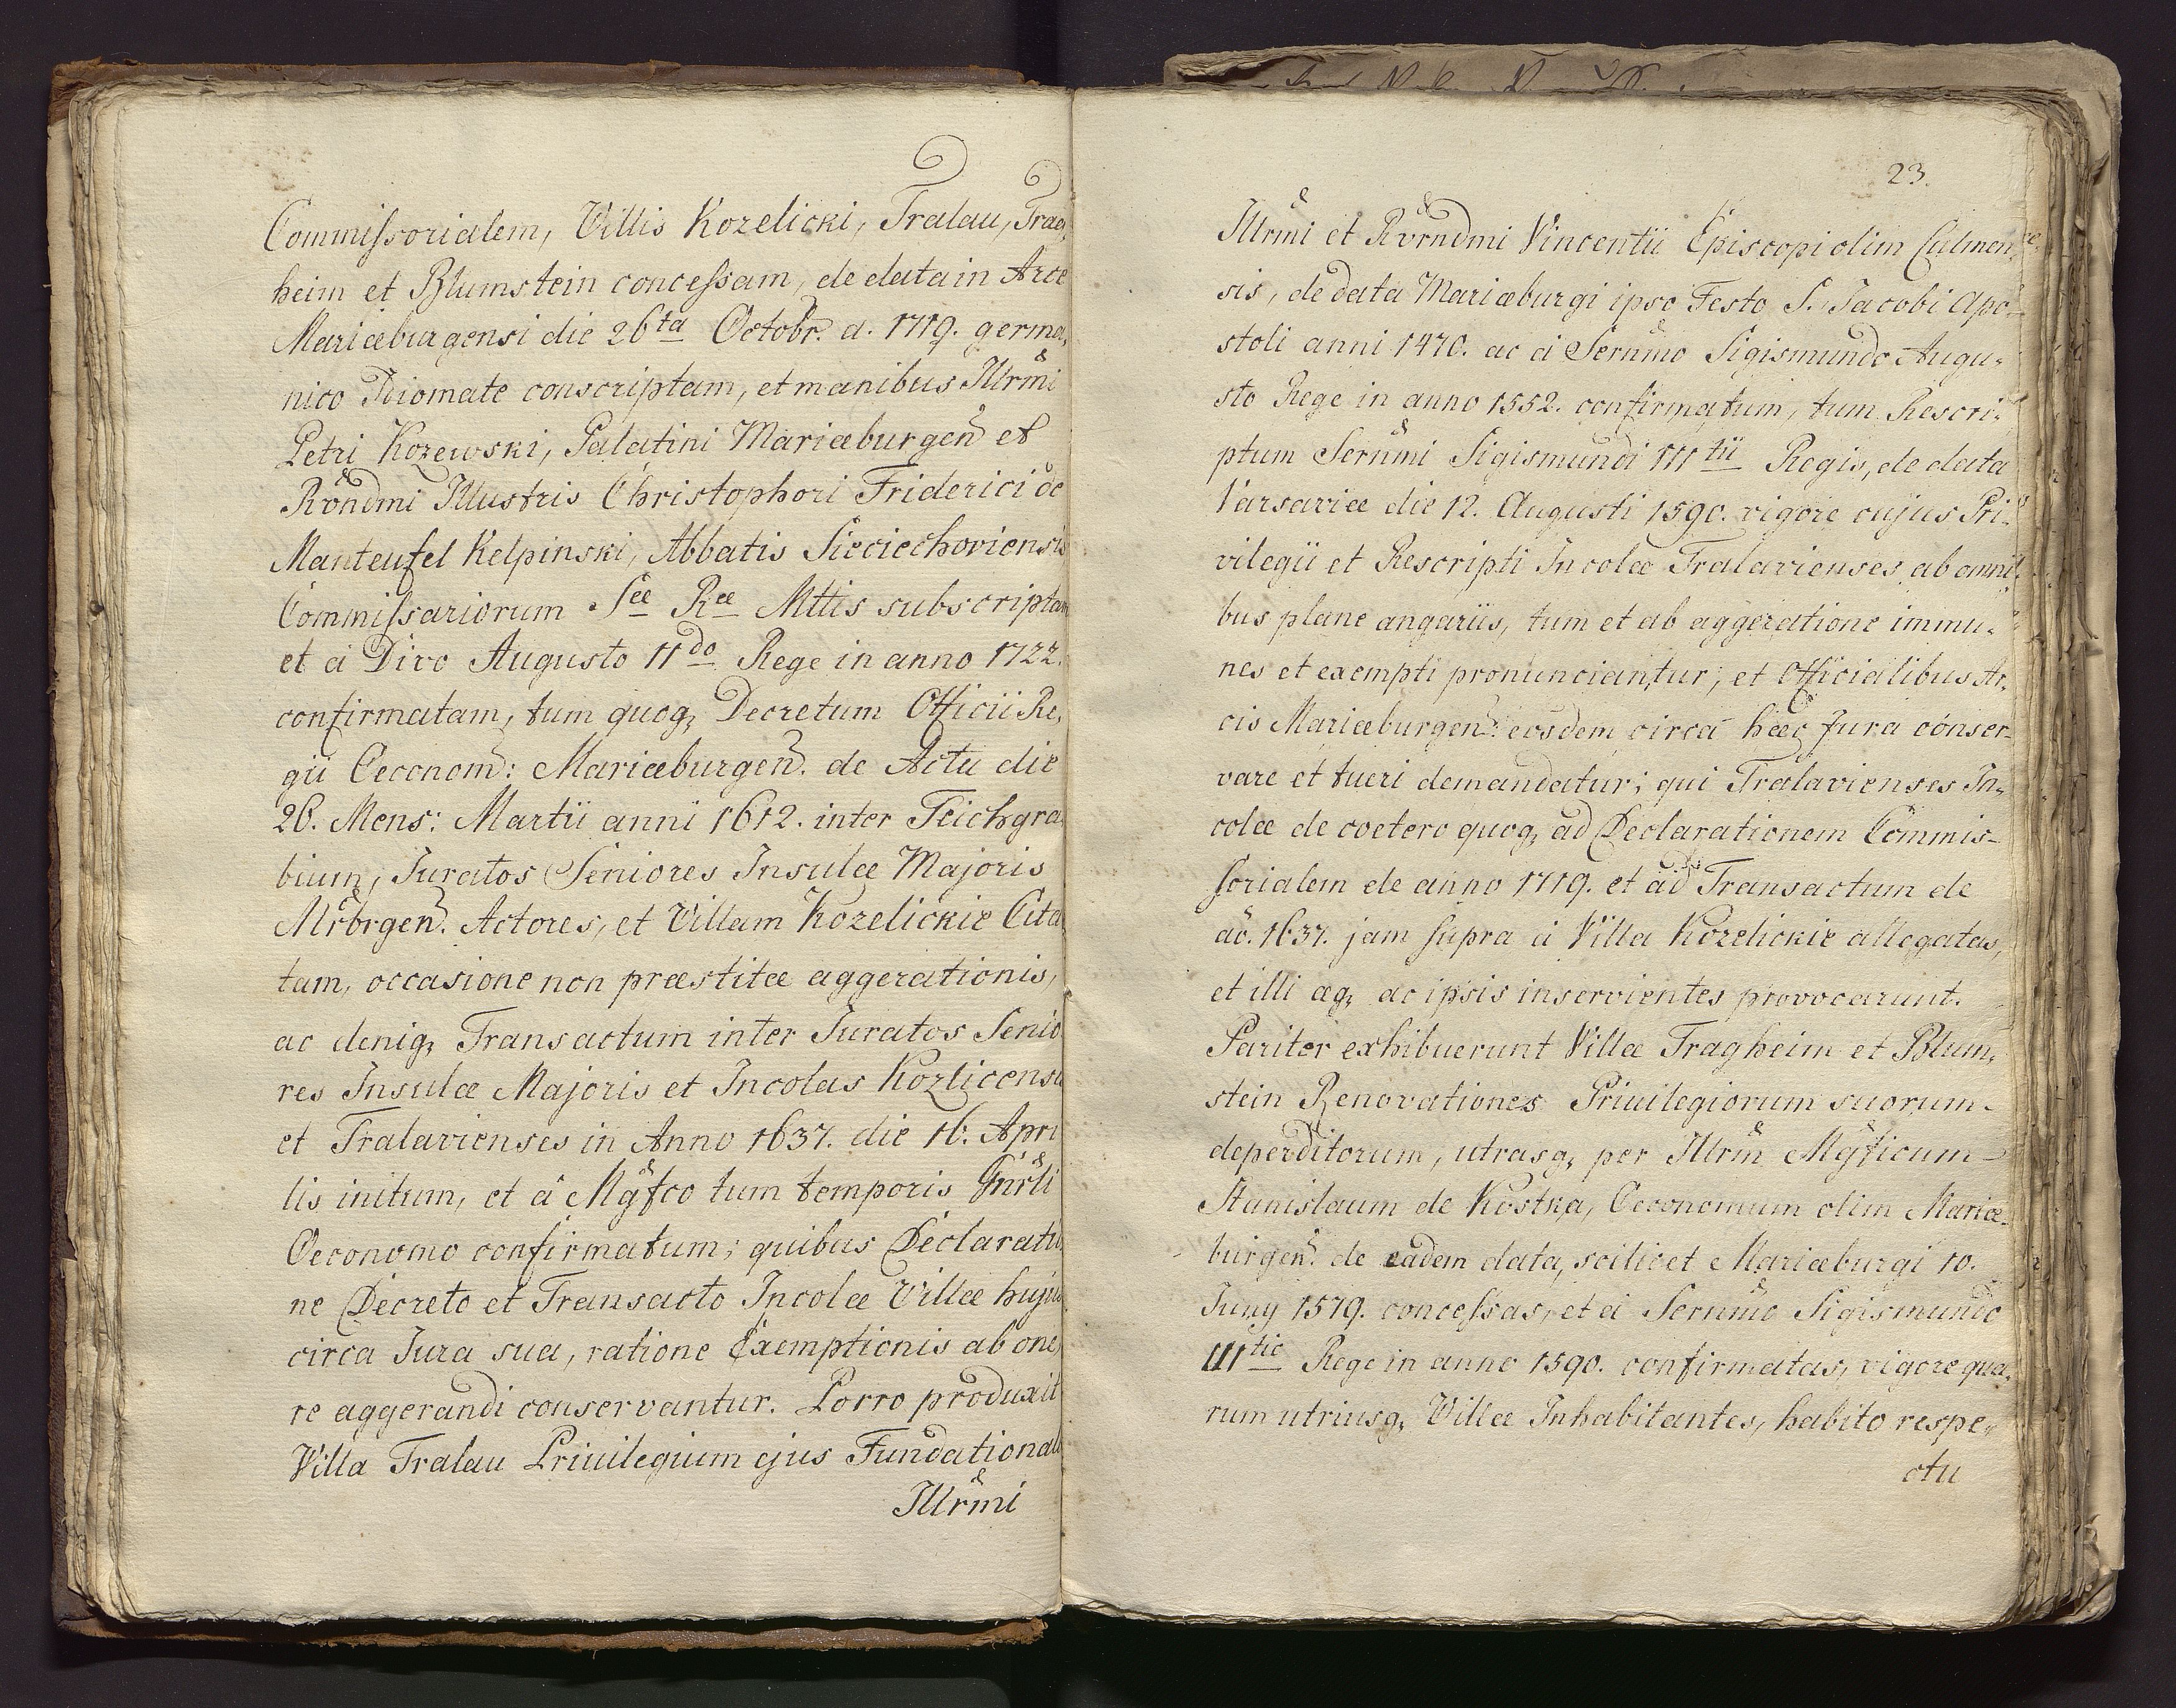 Commissorialem, Villis Kozelicki, Tralau, Trag,
heim et Blumstein concessam, de data in Arce
Mariæburgensi die 26ta Octobr. a. 1719. germa,
nico Idiomate conscriptam, et manibus Illrmi
Petri Kozewski, Palatini Mariæburgen et
Rondmi Illustris Christophori Friderici de
Manteufel Kelpinski, Abbatis Sieciechoviensis
Commissariorum Sæ Ræ Mttis subscriptam
et á Divo Augusto IIdo Rege in anno 1722.
confirmatam, tum quoq, Decretum Officii Re,
gii Oeconom: Mariæburgen. de Actu die
26. Mens: Martii anni 1612. inter Teichgra,
bium, Juratos Seniores Insulæ Majoris
Mrbrgen. Actores, et Villam Kozelickie Cita
tam, occasione non præstitæ aggerationis,
ac deniq, Transactum inter Juratos Senio
res Insulæ Majoris et Incolas Kozlicense
et Tralavienses in Anno 1637. die 16. Apri
lis initum, et á Mgfco tum temporis Gnrli
Oeconomo confirmatum; quibus Declaratio
ne Decreto et Transacto Incolæ Villæ hujus
circa Jura sua, ratione Exemptionis ab one,
re aggerandi conservantur. Porro produxit
Villa Tralau Priuilegium ejus Fundationale
Illrmi
23.
Illrmi et Rvrndmi Vincentii Episcopi olim Culmen,
sis, de data Mariæburgi ipso Festo S. Jacobi Apo-
stoli anni 1470. ac á Sernmo Sigismundo Augu-
sto Rege in anno 1552. confirmatum, tum Rescri-
ptum Sernmi Sigismundi IIItii Regis, de data
Varsaviæ die 12. Augusti 1590. vigore cujus Pri-
vilegii et Rescripti Incolæ Tralavienses ab omni,
bus plane angariis, tum et ab aggeratione immu-
nes et exempti pronunciantur; et Officialibus Ar,
cis Mariæburgen: eosdem circa hæc Jura conser-
vare et tueri demandatur; qui Tralavienses In,
colæ de coetero quoq, ad Declarationem Commis-
sorialem de anno 1719. et ad Transactum de
ao. 1637. jam supra á Villa Kozelickie allegatas,
et illi æq, ac ipsis inservientes provocarunt.
Pariter exhibuerunt Villæ Tragheim et Blum,
stein Renovationes Priuilegiorum suorum-
deperditorum, utrasq, per Illrm Mgficum-
Stanislaum de Kostka, Oeconomum olim Mariæ-
burgen. de eadem data, scilicet Mariæburgi 10.
Juny 1579. concessas, et á Sernmo Sigismundo
IIItio Rege in anno 1590. confirmatas, vigore qua,
rum utriusq, Villæ Inhabitantes, habito respe-
ctu